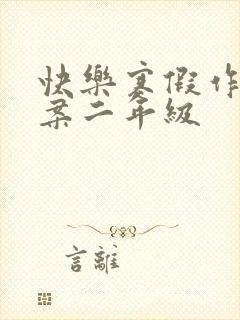 快樂寒假作
案二年級
言離